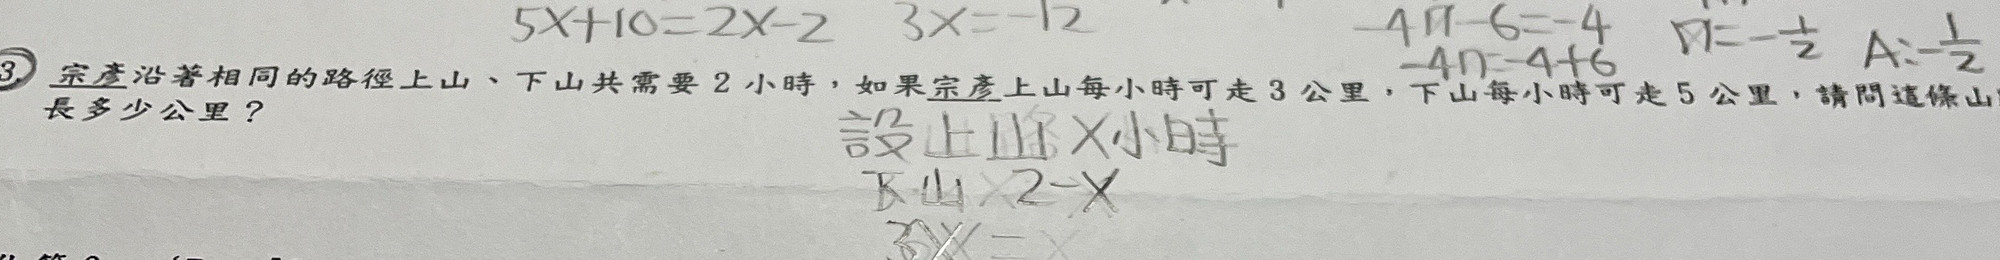 5X+10=2X-2 3X=-12 -4n-6=-4 n=-1/2 A:-1/2
-4n=-4+6
3. 宗彥沿著相同的路徑上山、下山共需要 2 小時，如果宗彥上山每小時可走 3 公里，下山每小時可走 5 公里，請問這條山
長多少公里？
設上山X小時
下山 2-X
3X=